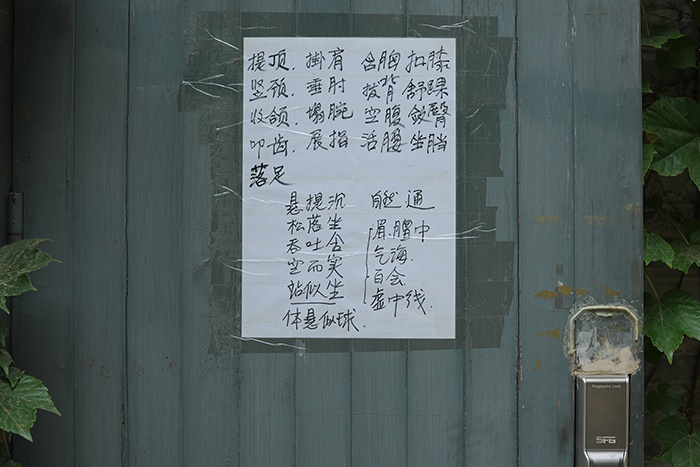 提顶. 掛肩 含胸 扣膝
竖颈. 垂肘 拔背 舒踝
收颌. 塌腕 空腹 敛臀
叩齿. 展指 活腰 坐裆
落足
悬提沉 自然通
松落坐 眉. 膻中
吞吐含 气海.
空而实 百会
站似坐 虚中线.
体悬似球.
Fingerprint Lock